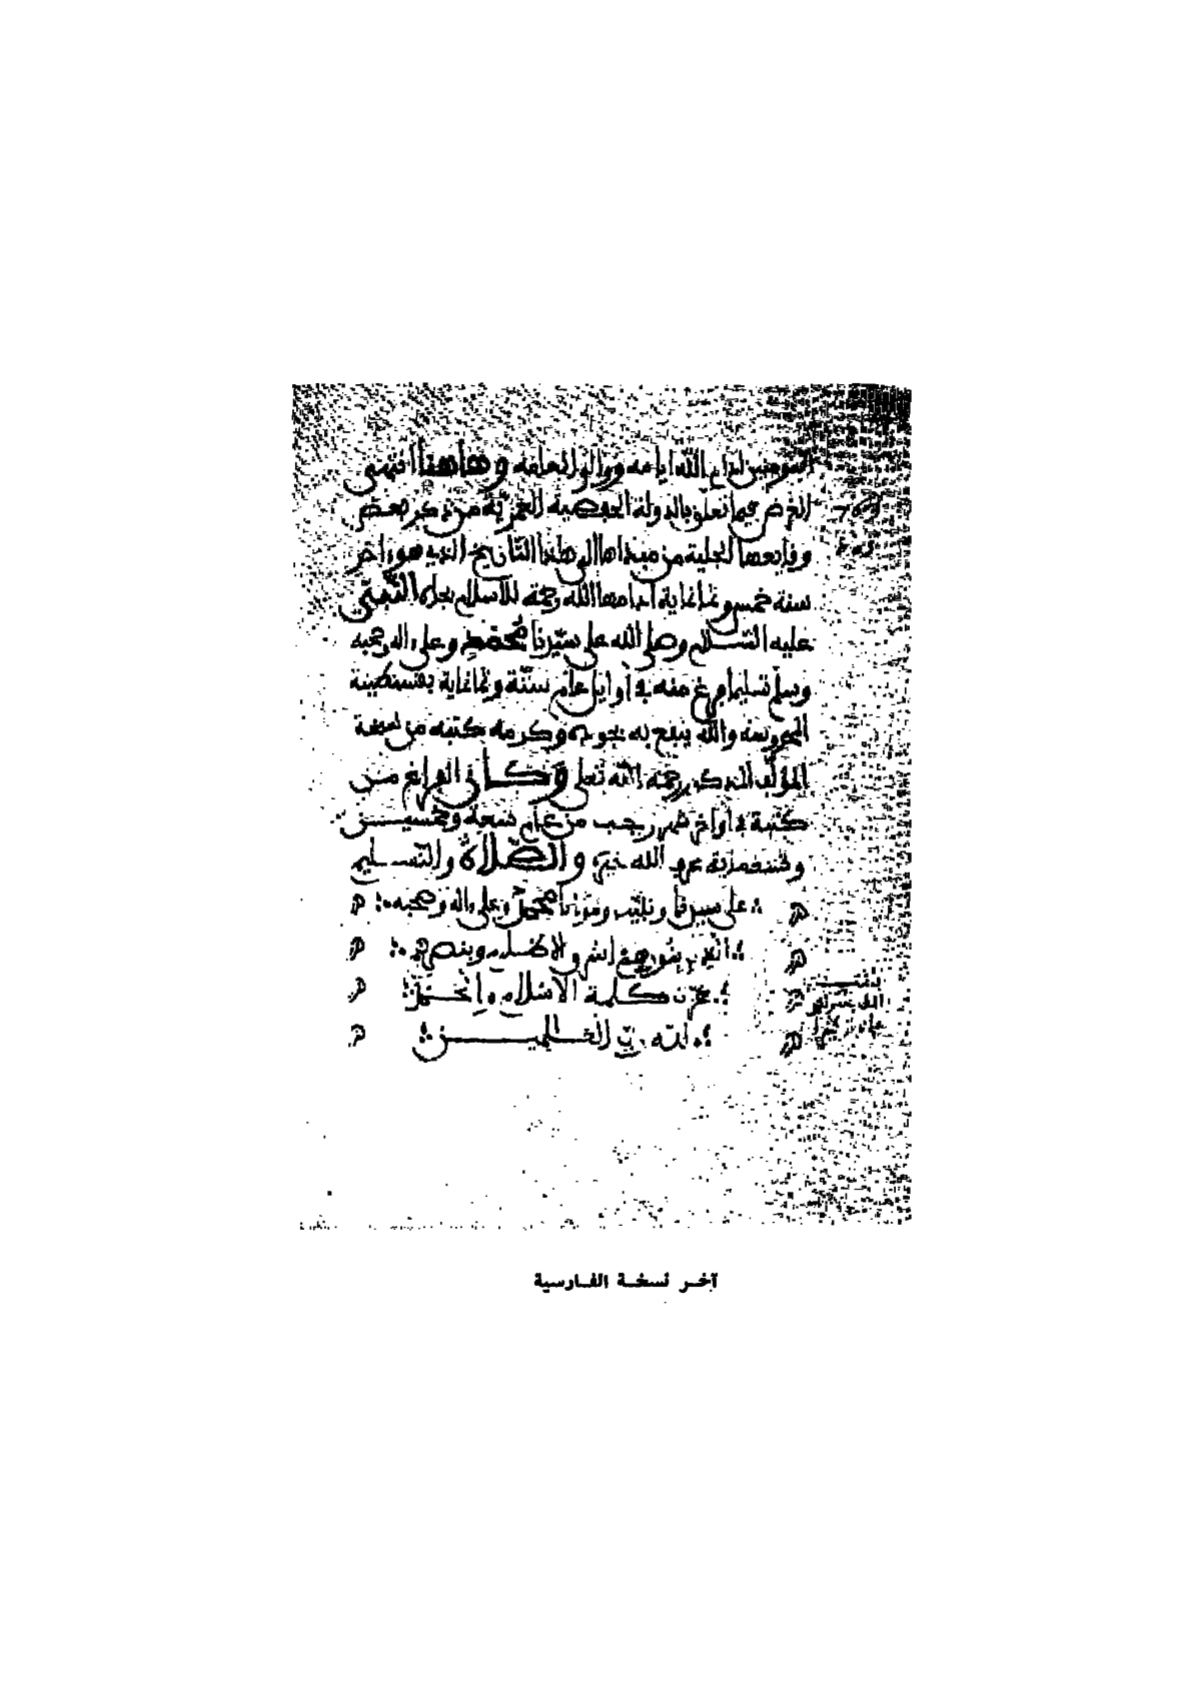 المومنين ادام الله ايامه ووالى انعامه وهاهنا انتهى
الغرض فيما تعلق بالدولة الحفصية العمرية من ذكر بعض
وقايعها الجلية من مبداها الى هذا التاريخ الذي هو ءاخر
سنة خمس وثمانماية ادامها الله رحمة للاسلام بجاه النبي
عليه السلام وصلى الله على سيدنا محمد وعلى ءاله وصحبه
وسلم تسليما فرغ منه في اوايل عام ستة وثمانماية بقسنطينة
المحروسة والله ينفع به بجوده وكرمه كتبته من نسخة
المؤلف المذكور رحمه الله تعلى وكان الفراغ من
كتبه في اواخر شهر رجب من عام تسعة وخمسين
وتسعماية عرف الله خيره والصلاة والتسليم
على سيدنا ونبينا ومولانا محمد وعلى ءاله وصحبه
كلمة الاسلام والحمد
لله رب العالمين
آخر نسخة الفارسية